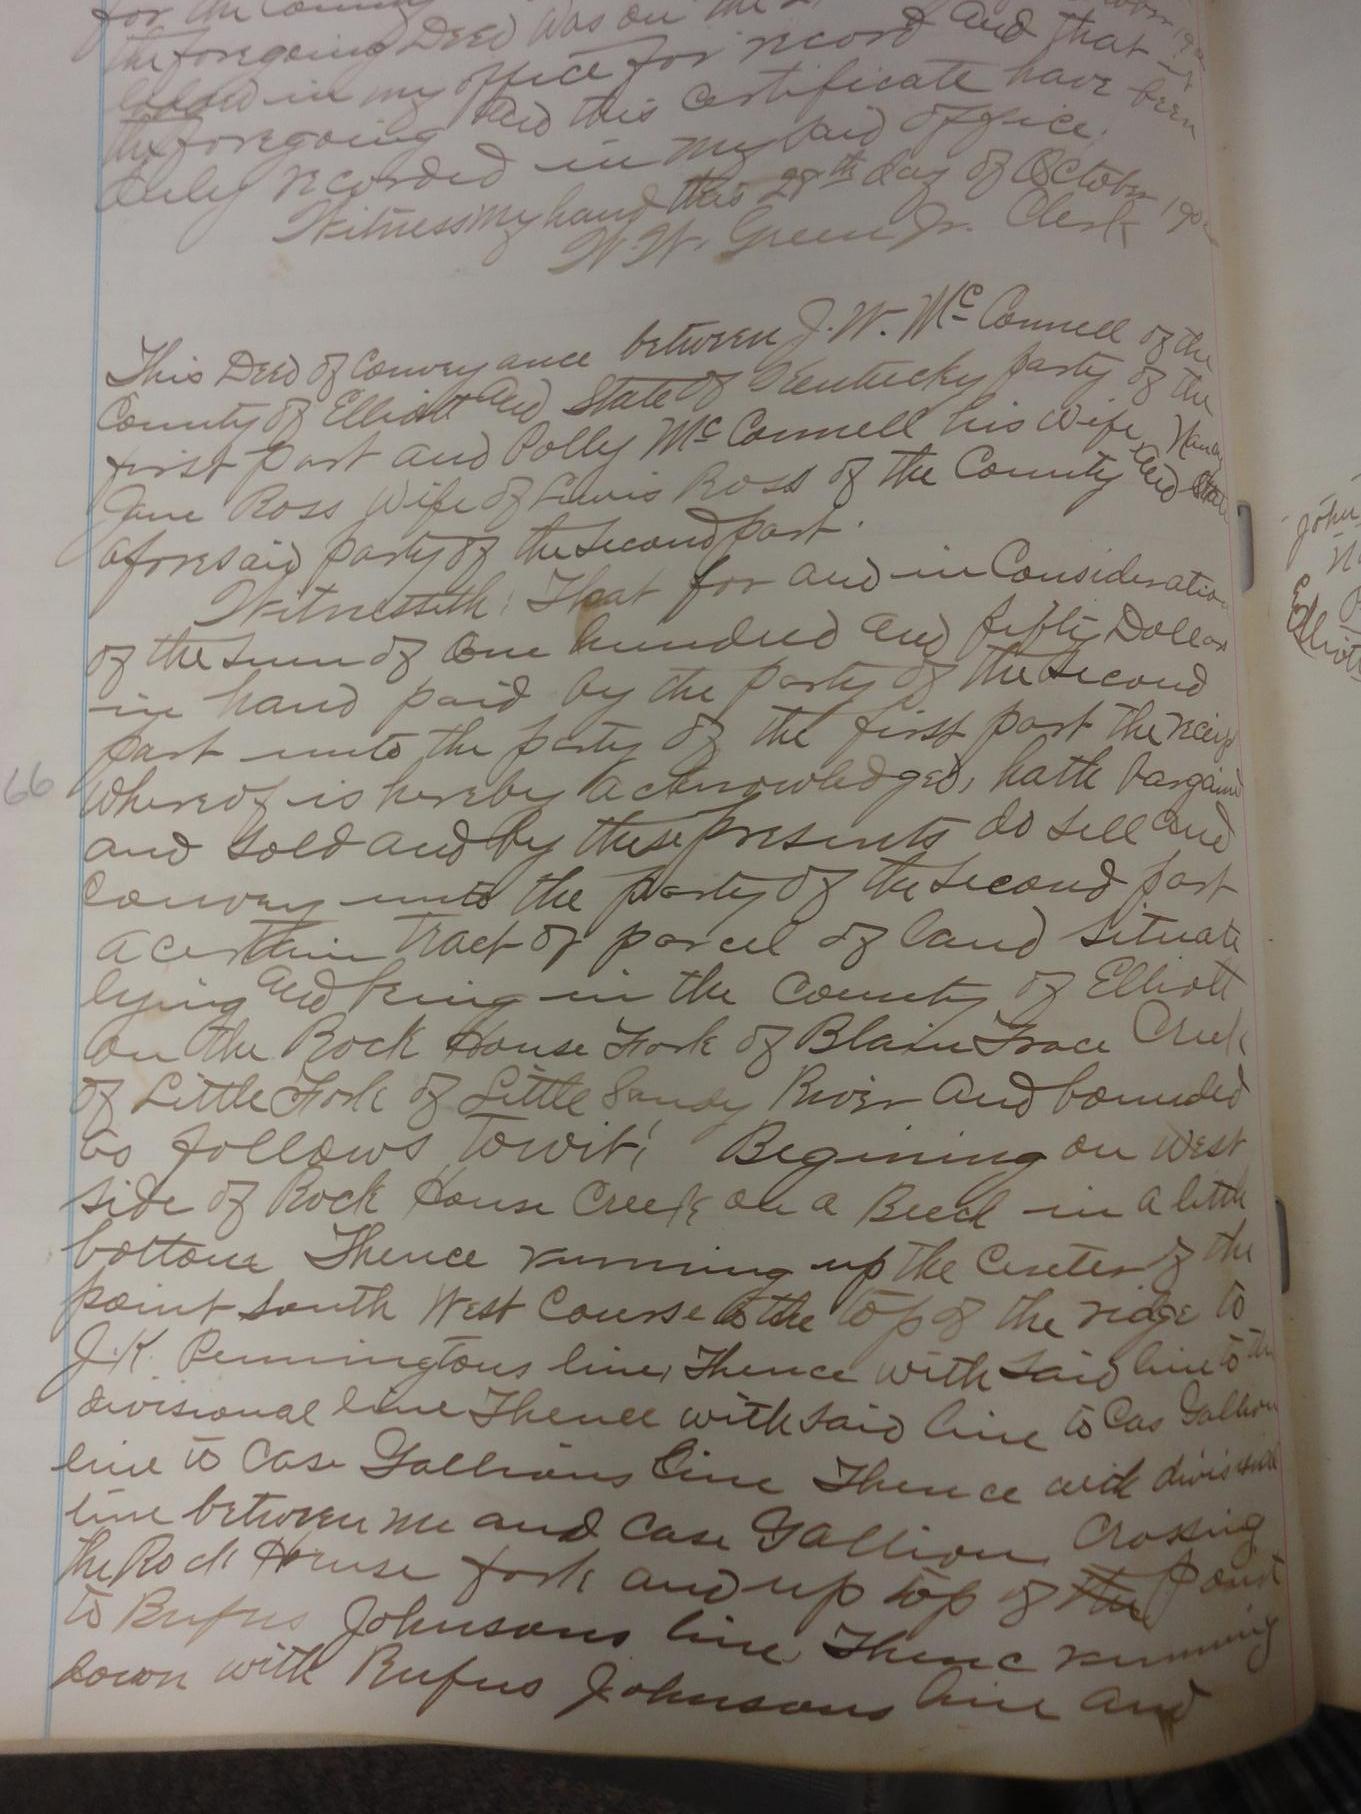 for the County
the foregoing Deed was on the
lodged in my office for record and that it
the foregoing and this certificate have been
duly recorded in my said office.
Witness my hand this 28th day of October 190
W. W. Green Jr. Clerk
This Deed of Conveyance between J. W. McConnell of the
County of Elliott and State of Kentucky party of the
first part and Polly McConnell his Wife, Nancy
Jane Ross Wife of Lewis Ross of the County and State
aforesaid party of the second part.
Witnesseth: That for and in Consideration
of the sum of One hundred and fifty Dollars
in hand paid by the party of the second
part unto the party of the first part the receip
whereof is hereby acknowledged, hath bargained
66
and sold and by these presents do sell and
Convey unto the party of the second part
a certain tract or parcel of land situate
lying and being in the County of Elliott
on the Rock House Fork of Blain Trace Creek
of Little Fork of Little Sandy River and bounded
as follows Towit: Begining on West
side of Rock House Creek on a Beech in a little
bottom Thence running up the Center of the
point South West Course to the top of the ridge to
J. K. Penningtons line, Thence with said line to the
divisional line Thence with said line to Cas Gallion
line to Case Gallions line Thence with divisional
line between me and Case Gallion, Crossing
the Rock House fork and up top of the point
to Rufus Johnsons line, Thence running
down with Rufus Johnsons line and
John
Elliott